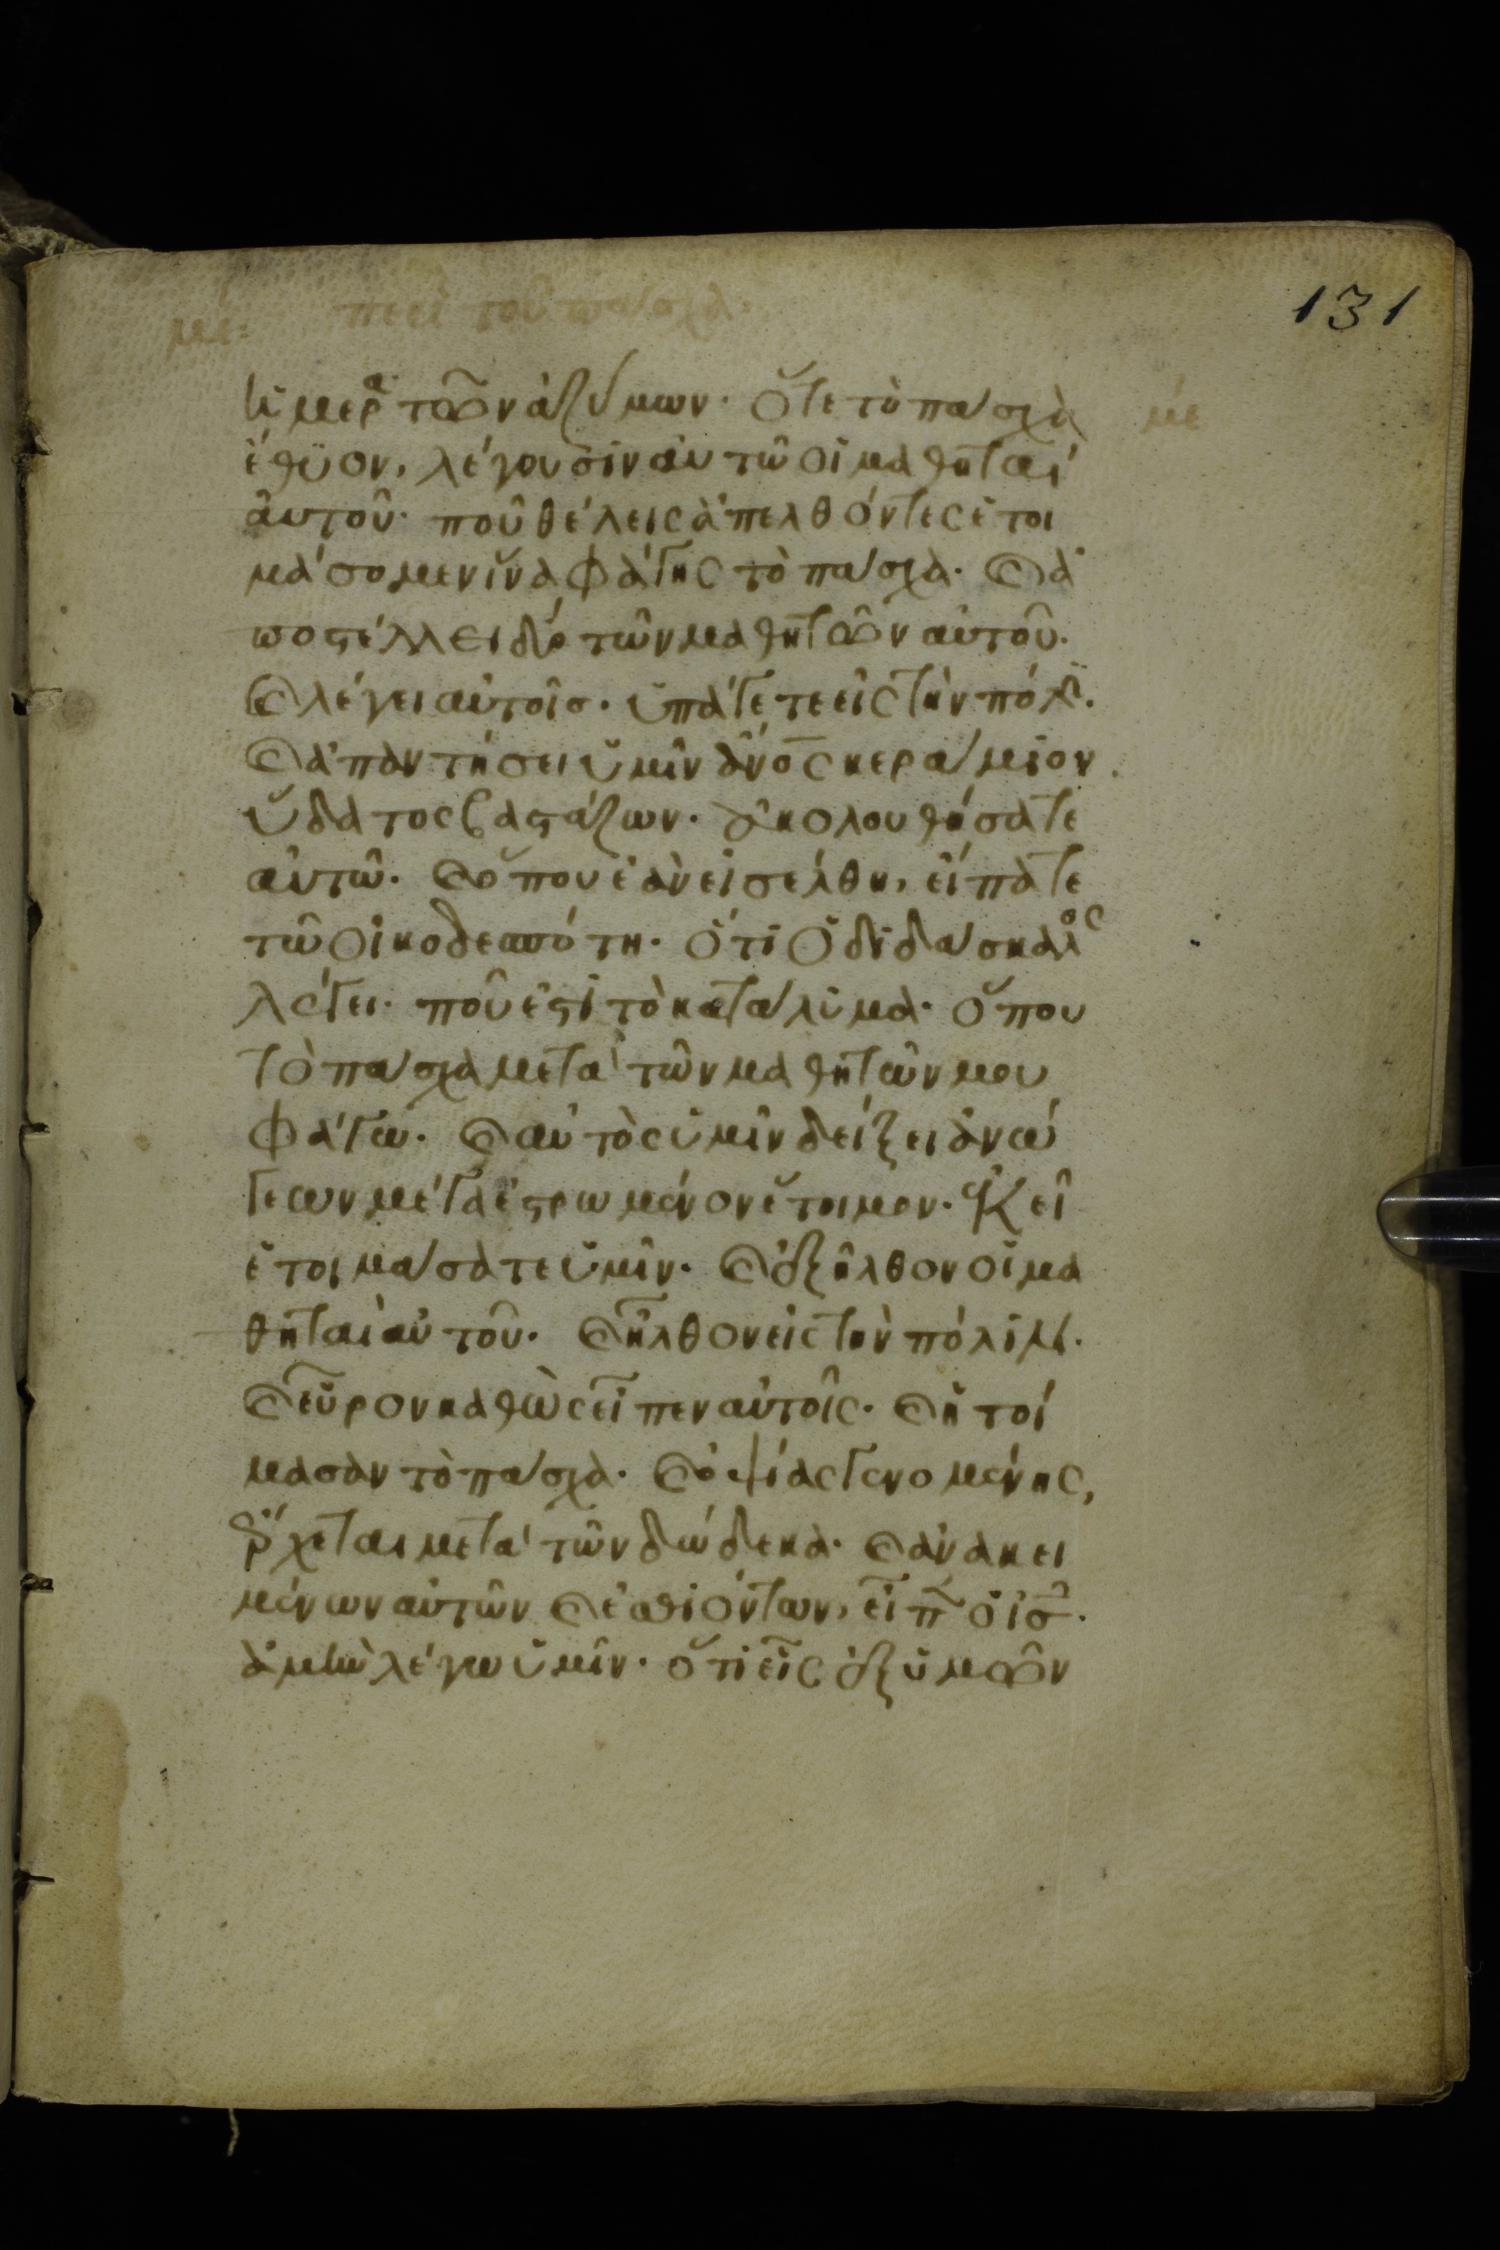 131
με: περὶ τοῦ πάσχα·
ἡμέρᾳ τῶν ἀζύμων· ὅτε τὸ πάσχα με
ἔθϋον, λέγουσιν αὐτῶ οἱ μαθηταί
αὐτοῦ· ποῦ θέλεις ἀπελθόντες ἑτοι
μάσομεν ἵνα φάγης τὸ πάσχα· καὶ ἀ
ποστέλλει δύο τῶν μαθητῶν αὐτοῦ·
καὶ λέγει αὐτοῖσ· ὑπάγετε εἰς τὴν πόλιν·
καὶ ἀπαντήσει ὑμῖν ἄνος κεράμιον
ὕδατος βαστάζων· ἀκολουθήσατε
αὐτῶ· καὶ ὅπου ἐὰν εἰσέλθη, εἴπατε
τῶ οἰκοδεσπότη· ὅτι ὁ διδάσκαλος
λέγει· ποῦ ἐστὶ τὸ κατάλυμα· ὅπου
τὸ πάσχα μετὰ τῶν μαθητῶν μου
φάγω· καὶ αὐτὸς ὑμῖν δείξει ἀνώ
γεων μέγα ἐστρωμένον ἕτοιμον· ἐκεῖ
ἑτοιμάσατε ὑμῖν· καὶ ἐξῆλθον οἱ μα
θηταὶ αὐτοῦ· καὶ ἦλθον εἰς τὴν πόλιν·
καὶ εὗρον καθὼς εἶπεν αὐτοῖς· καὶ ἡτοί
μασαν τὸ πάσχα· καὶ ὀψίας γενομένης,
ἔρχεται μετὰ τῶν δώδεκα· καὶ ἀνακει
μένων αὐτῶν καὶ ἐσθιόντων, εἶπεν ὁ ἰσ·
ἀμὴν λέγω ὑμῖν· ὅτι εἷς ἐξ ὑμῶν